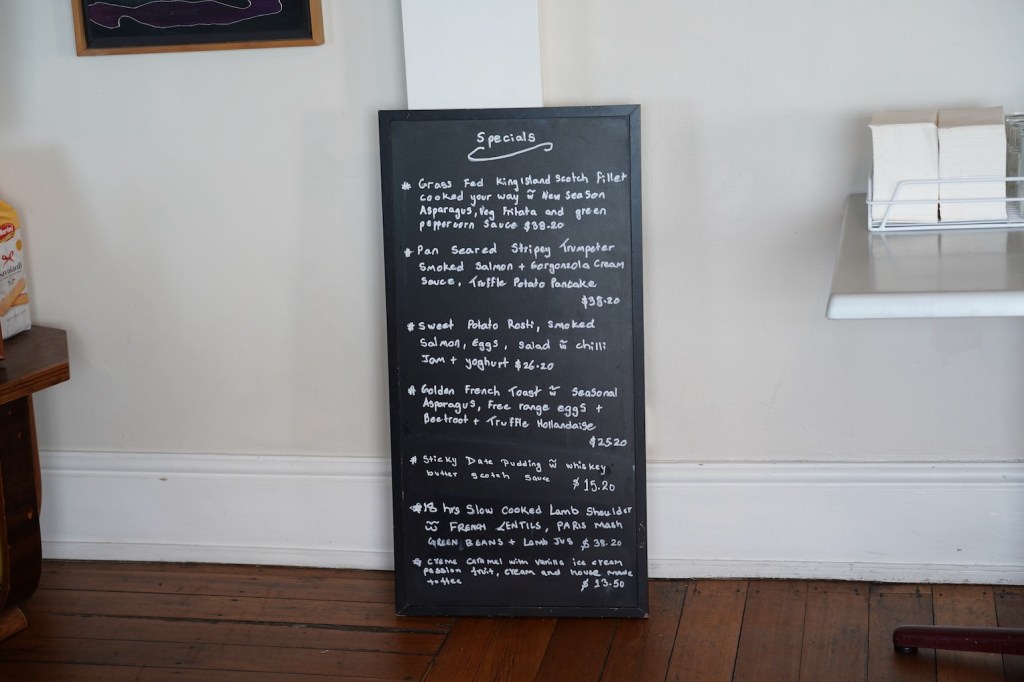 Specials
* Grass Fed King Island Scotch Fillet
cooked your way w̃ New Season
Asparagus, Veg Fritata and green
peppercorn Sauce $38.20
* Pan Seared Stripey Trumpeter
Smoked Salmon + Gorgonzola Cream
Sauce, Truffle Potato Pancake
$38.20
* Sweet Potato Rosti, Smoked
Salmon, Eggs, Salad w̃ chilli
Jam + yoghurt $26.20
* Golden French Toast w̃ Seasonal
Asparagus, Free range eggs +
Beetroot + Truffle Hollandaise
$25.20
* Sticky Date Pudding w̃ whiskey
butter scotch sauce $15.20
* 18 hrs Slow Cooked Lamb Shoulder
w̃ FRENCH LENTILS, PARIS Mash
GREEN BEANS + Lamb JUS $38.20
* creme caramel with vanilla ice cream
passion fruit, cream and house made
toffee $13.50